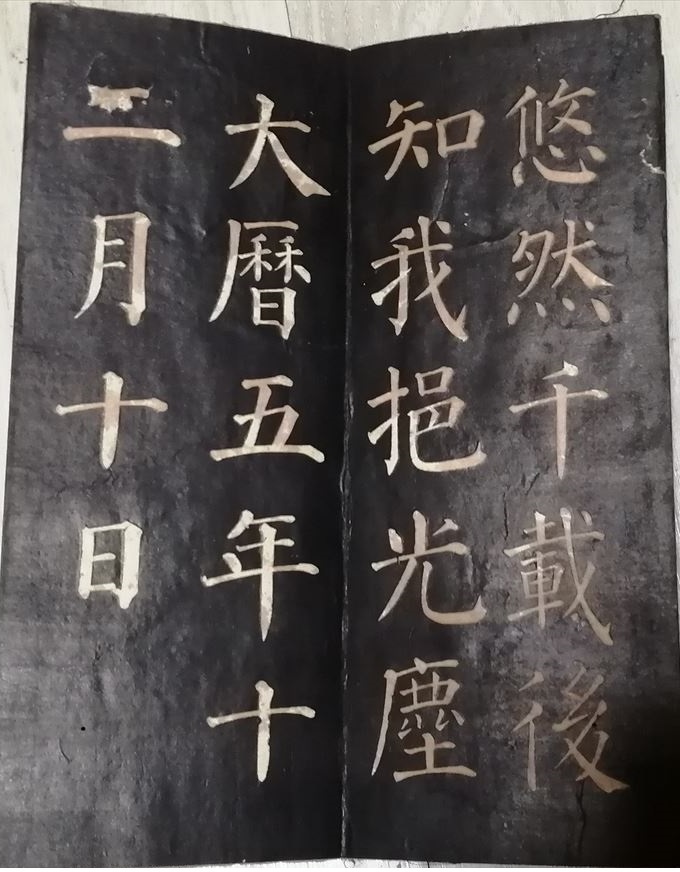 悠然千載後
知我挹光塵
大曆五年十
二月十日